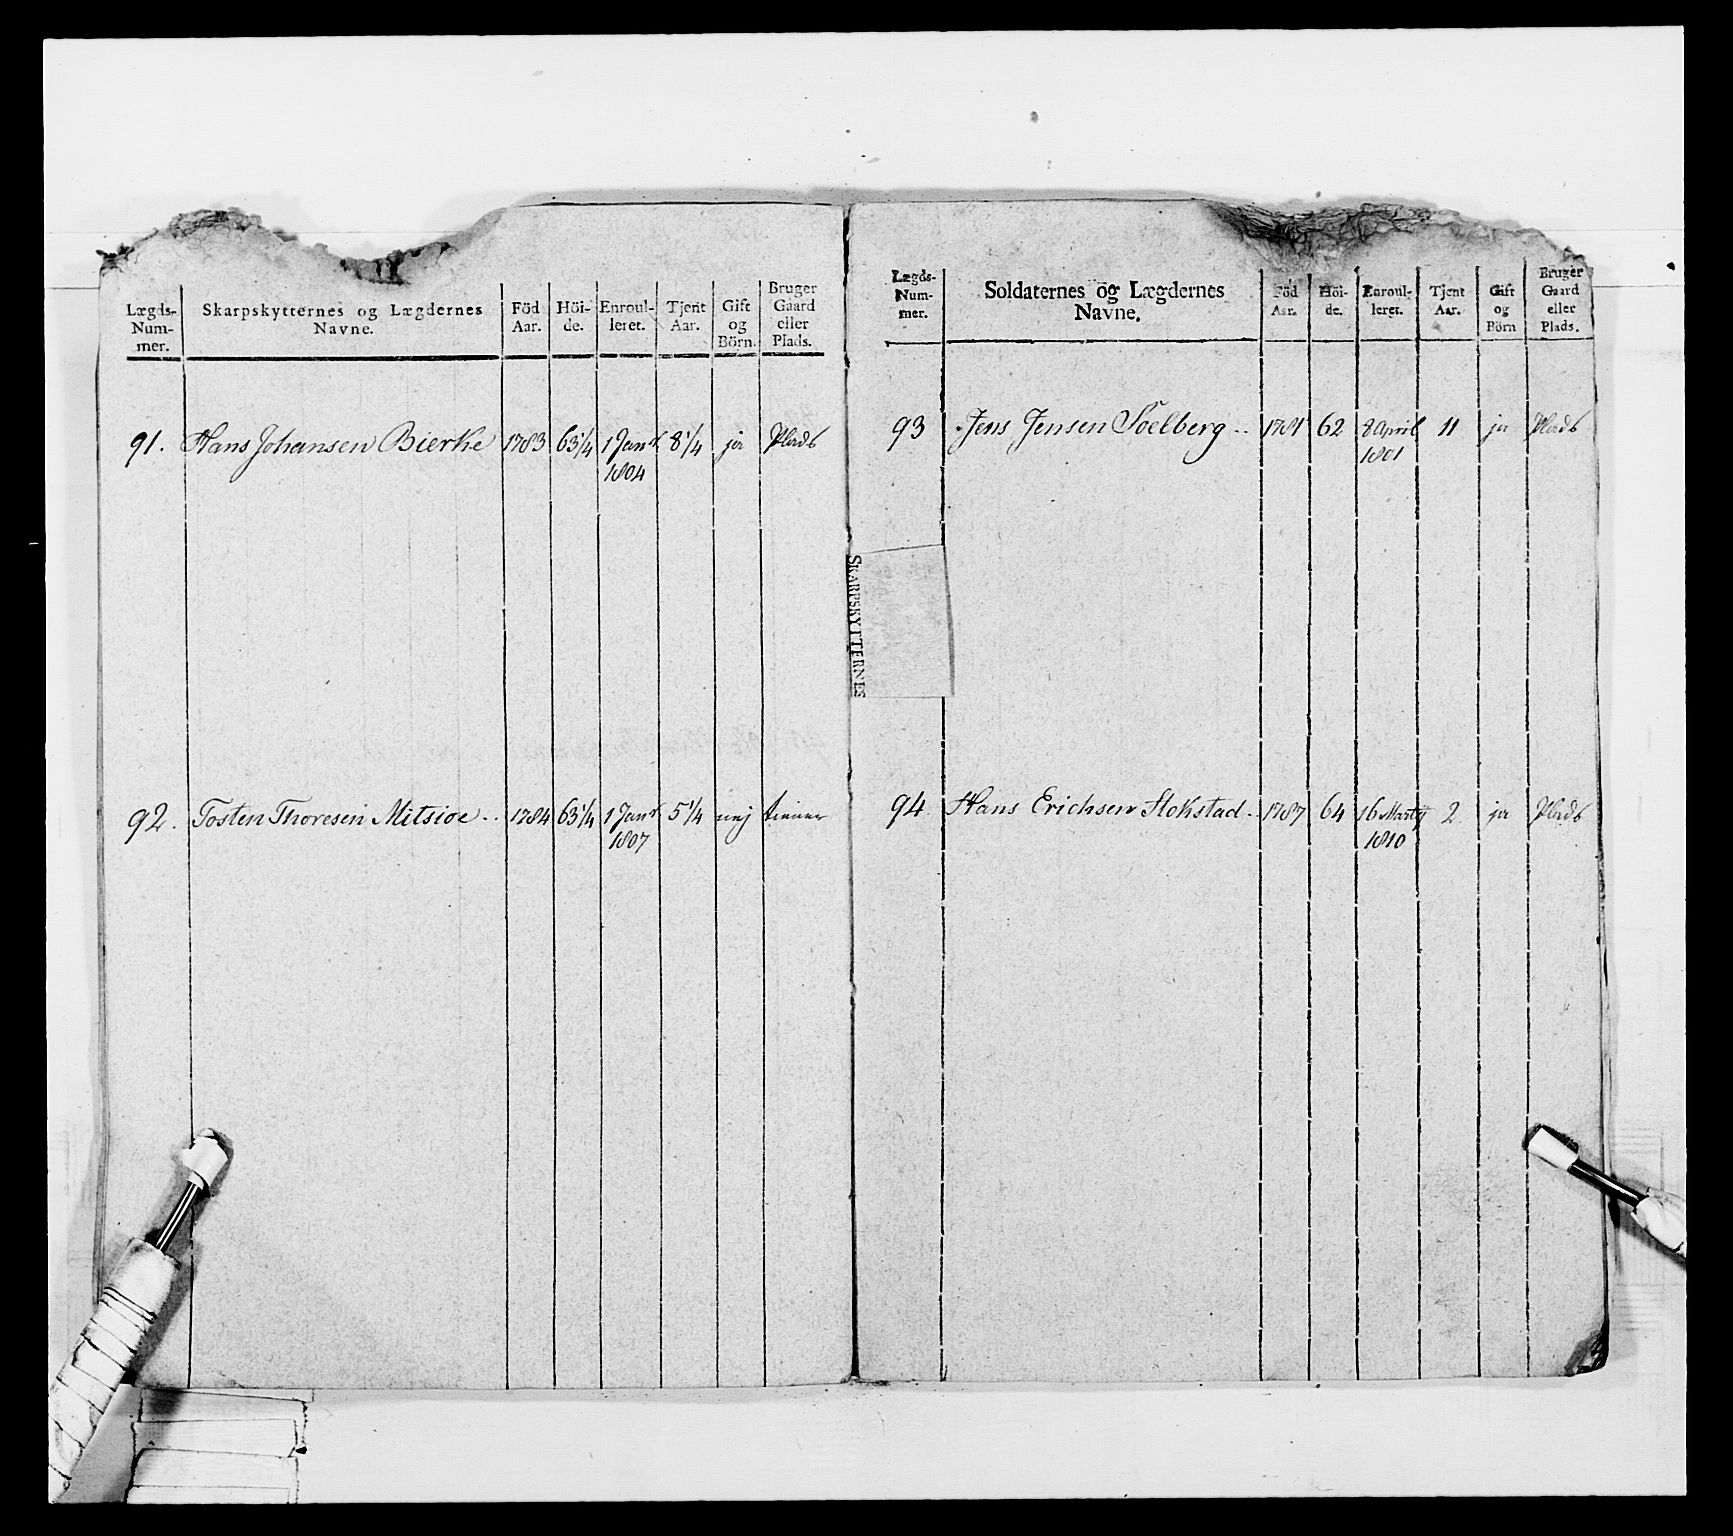 Lægds-
Num-
mer.
Skarpskytternes og Lægdernes
Navne.
Föd
Aar.
Höi-
de.
Enroul-
leret.
Tjent
Aar.
Gift
og
Börn.
Bruger
Gaard
eller
Plads.
91. Hans Johansen Bierke 1783 63 1/4 1 Janr 8 1/4 ja Plads
1804
92. Tosten Thoresen Mitsioe 1784 63 1/4 1 Janr 5 1/4 nej tiener
1807
SKARPSKYTTERNES
Lægds-
Num-
mer.
Soldaternes og Lægdernes
Navne.
Föd
Aar.
Höi-
de.
Enroul-
leret.
Tjent
Aar.
Gift
og
Börn
Bruger
Gaard
eller
Plads.
93 Jens Jensen Soelberg 1781 62 8 April 11 ja Plads
1801
94 Hans Erichsen Stokstad 1787 64 16 Martij 2 ja Plads
1810